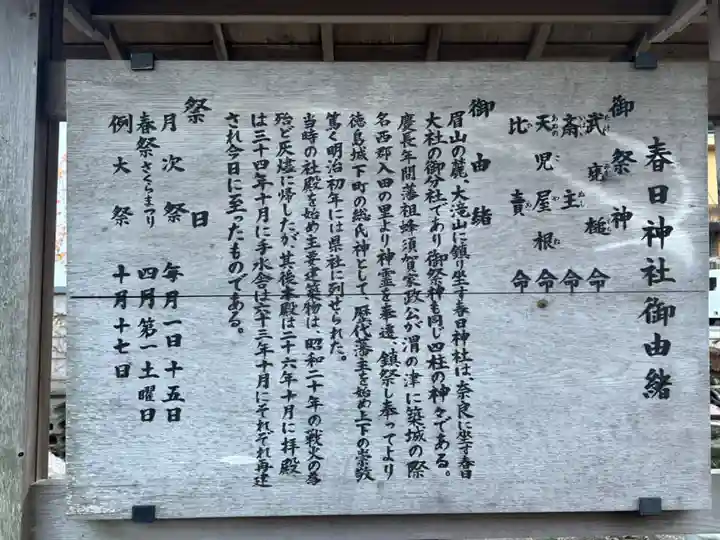 春日神社御由緒
御祭神
武甕槌命
斎主命
天児屋根命
比賣命
御由緒
眉山の麓、大滝山に鎮り坐す春日神社は、奈良に坐す春日
大社の御分社であり御祭神も同じ四柱の神々である。
慶長年間藩祖蜂須賀家政公が渭の津に築城の際
名西郡入田の里より神霊を奉遷、鎮祭し奉ってより
徳島城下町の総氏神として、歴代藩主を始め上下の崇敬
篤く明治初年には県社に列せられた。
当時の社殿を始め主要建築物は、昭和二十年の戦火の為
殆ど灰燼に帰したが、其後本殿は二十六年十月に拝殿
は三十四年十月に手水舎は六十三年十月にそれぞれ再建
され今日に至ったものである。
祭日
月次祭 毎月一日十五日
春祭さくらまつり 四月第一土曜日
例大祭 十月十七日